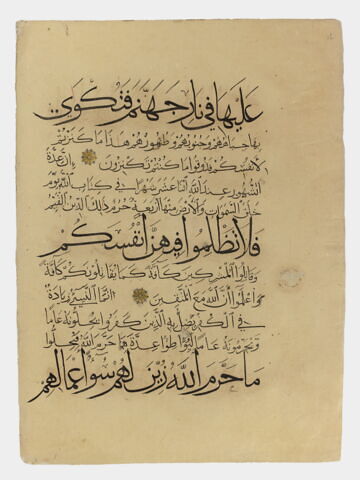 عليها في نار جهنم فتكوى
بها جباههم وجنوبهم وظهورهم هذا ما كنزتم
لانفسكم فذوقوا ما كنتم تكنزون ان عدة
الشهور عند الله اثنا عشر شهرا في كتاب الله يوم
خلق السموات والارض منها اربعة حرم ذلك الدين القيم
فلا تظلموا فيهن انفسكم
وقاتلوا المشركين كافة كما يقاتلونكم كافة
واعلموا ان الله مع المتقين انما النسيء زيادة
في الكفر يضل به الذين كفروا يحلونه عاما
ويحرمونه عاما ليواطئوا عدة ما حرم الله فيحلوا
ما حرم الله زين لهم سوء اعمالهم